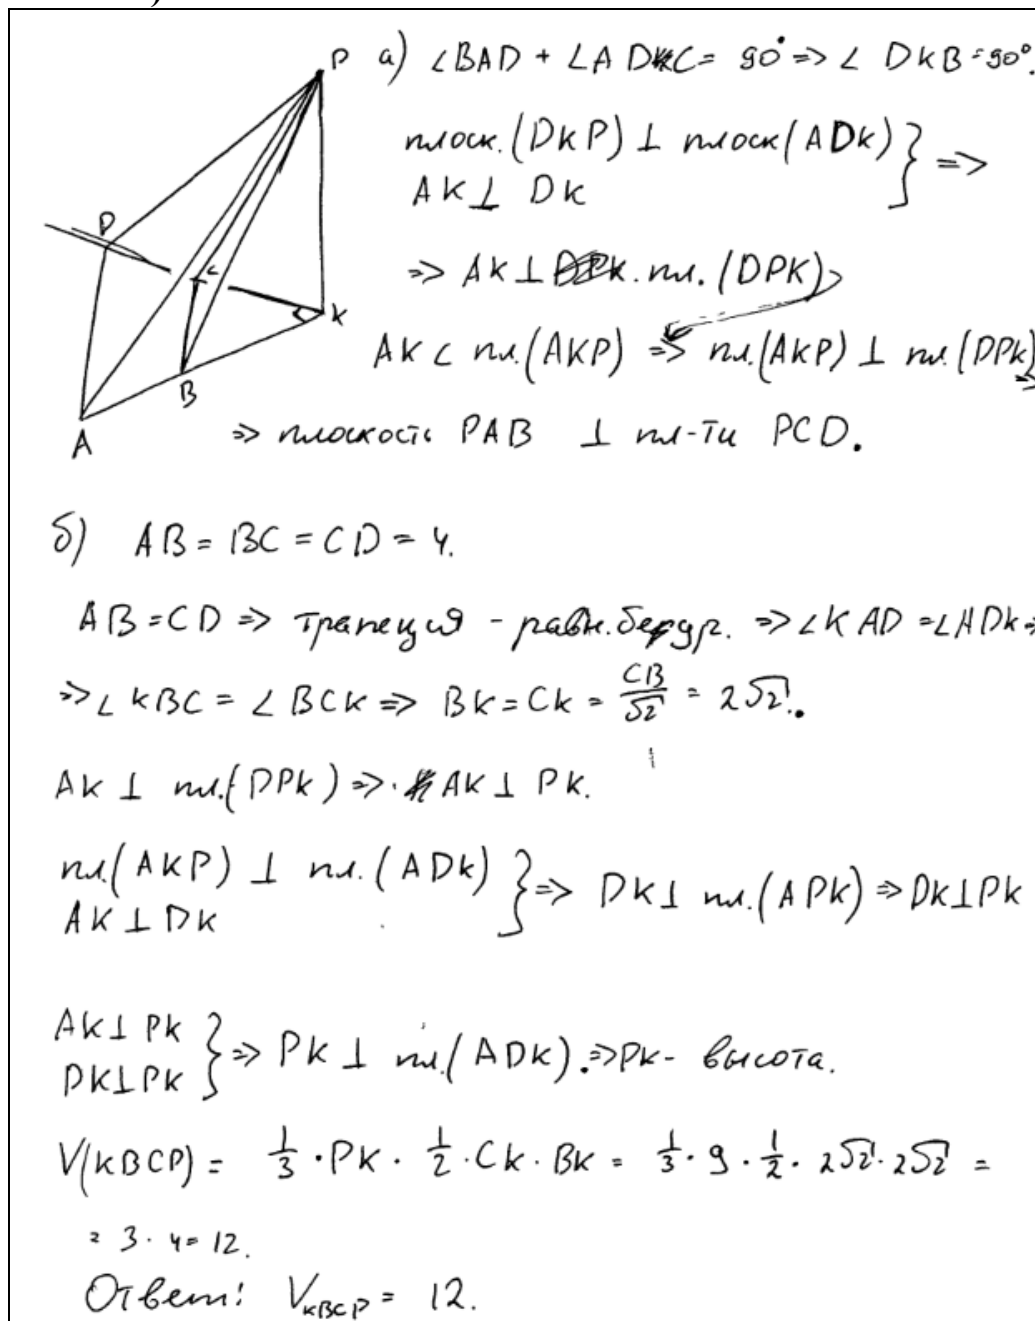 P
D
C
K
B
A
а) ∠BAD + ∠ADC = 90° => ∠DKB = 90°.
плоск. (DKP) ⊥ плоск (ADK)
AK ⊥ DK } =>
=> AK ⊥ пл. (DPK)
AK ⊂ пл. (AKP) => пл. (AKP) ⊥ пл. (DPK) =>
=> плоскость PAB ⊥ пл-ти PCD.
б) AB = BC = CD = 4.
AB = CD => трапеция - равн.бедр. => ∠KAD = ∠ADK =>
=> ∠KBC = ∠BCK => BK = CK = CB/√2 = 2√2.
AK ⊥ пл. (DPK) => AK ⊥ PK.
пл. (AKP) ⊥ пл. (ADK)
AK ⊥ DK } => DK ⊥ пл. (APK) => DK ⊥ PK
AK ⊥ PK
DK ⊥ PK } => PK ⊥ пл. (ADK). => PK - высота.
V(KBCP) = 1/3 · PK · 1/2 · CK · BK = 1/3 · 9 · 1/2 · 2√2 · 2√2 =
= 3 · 4 = 12.
Ответ: V KBCP = 12.